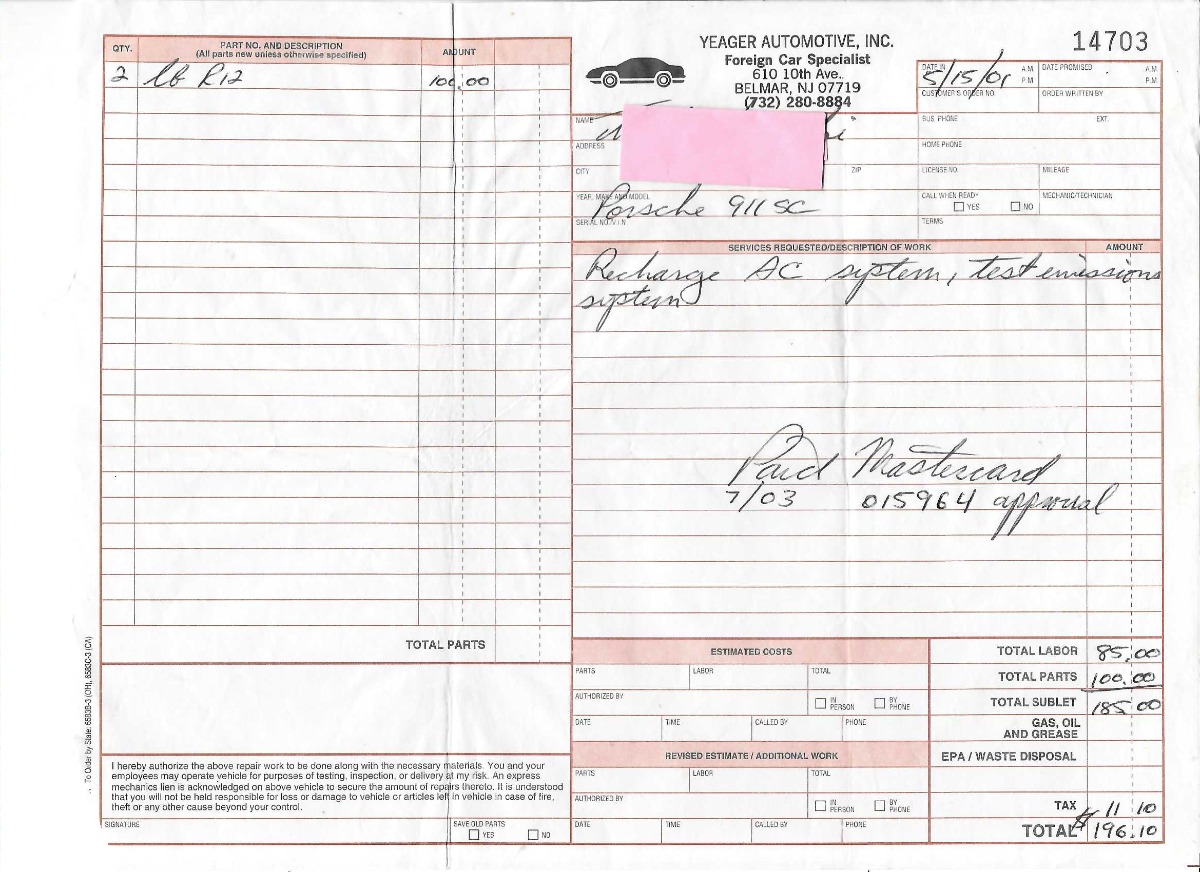 YEAGER AUTOMOTIVE, INC.
Foreign Car Specialist
610 10th Ave.
BELMAR, NJ 07719
(732) 280-8884
14703
QTY.
PART NO. AND DESCRIPTION
(All parts new unless otherwise specified)
AMOUNT
2 lb R12 100.00
TOTAL PARTS
DATE IN 5/15/01 A.M. P.M.
DATE PROMISED A.M. P.M.
CUSTOMER'S ORDER NO.
ORDER WRITTEN BY
NAME
BUS. PHONE EXT.
ADDRESS
HOME PHONE
CITY ZIP
LICENSE NO. MILEAGE
YEAR, MAKE AND MODEL
Porsche 911 SC
CALL WHEN READY
YES NO
MECHANIC/TECHNICIAN
SERIAL NO./V.I.N.
TERMS
SERVICES REQUESTED/DESCRIPTION OF WORK AMOUNT
Recharge AC system, test emissions
system
Paid Mastercard
7/03 015964 approval
ESTIMATED COSTS
PARTS LABOR TOTAL
AUTHORIZED BY
IN PERSON BY PHONE
DATE TIME CALLED BY PHONE
REVISED ESTIMATE / ADDITIONAL WORK
PARTS LABOR TOTAL
AUTHORIZED BY
IN PERSON BY PHONE
DATE TIME CALLED BY PHONE
TOTAL LABOR 85.00
TOTAL PARTS 100.00
TOTAL SUBLET 185 00
GAS, OIL
AND GREASE
EPA / WASTE DISPOSAL
TAX 11 10
TOTAL $196.10
I hereby authorize the above repair work to be done along with the necessary materials. You and your
employees may operate vehicle for purposes of testing, inspection, or delivery at my risk. An express
mechanics lien is acknowledged on above vehicle to secure the amount of repairs thereto. It is understood
that you will not be held responsible for loss or damage to vehicle or articles left in vehicle in case of fire,
theft or any other cause beyond your control.
SIGNATURE
SAVE OLD PARTS
YES NO
To Order by State: 6583B-3 (OH), 6583C-3 (CA)